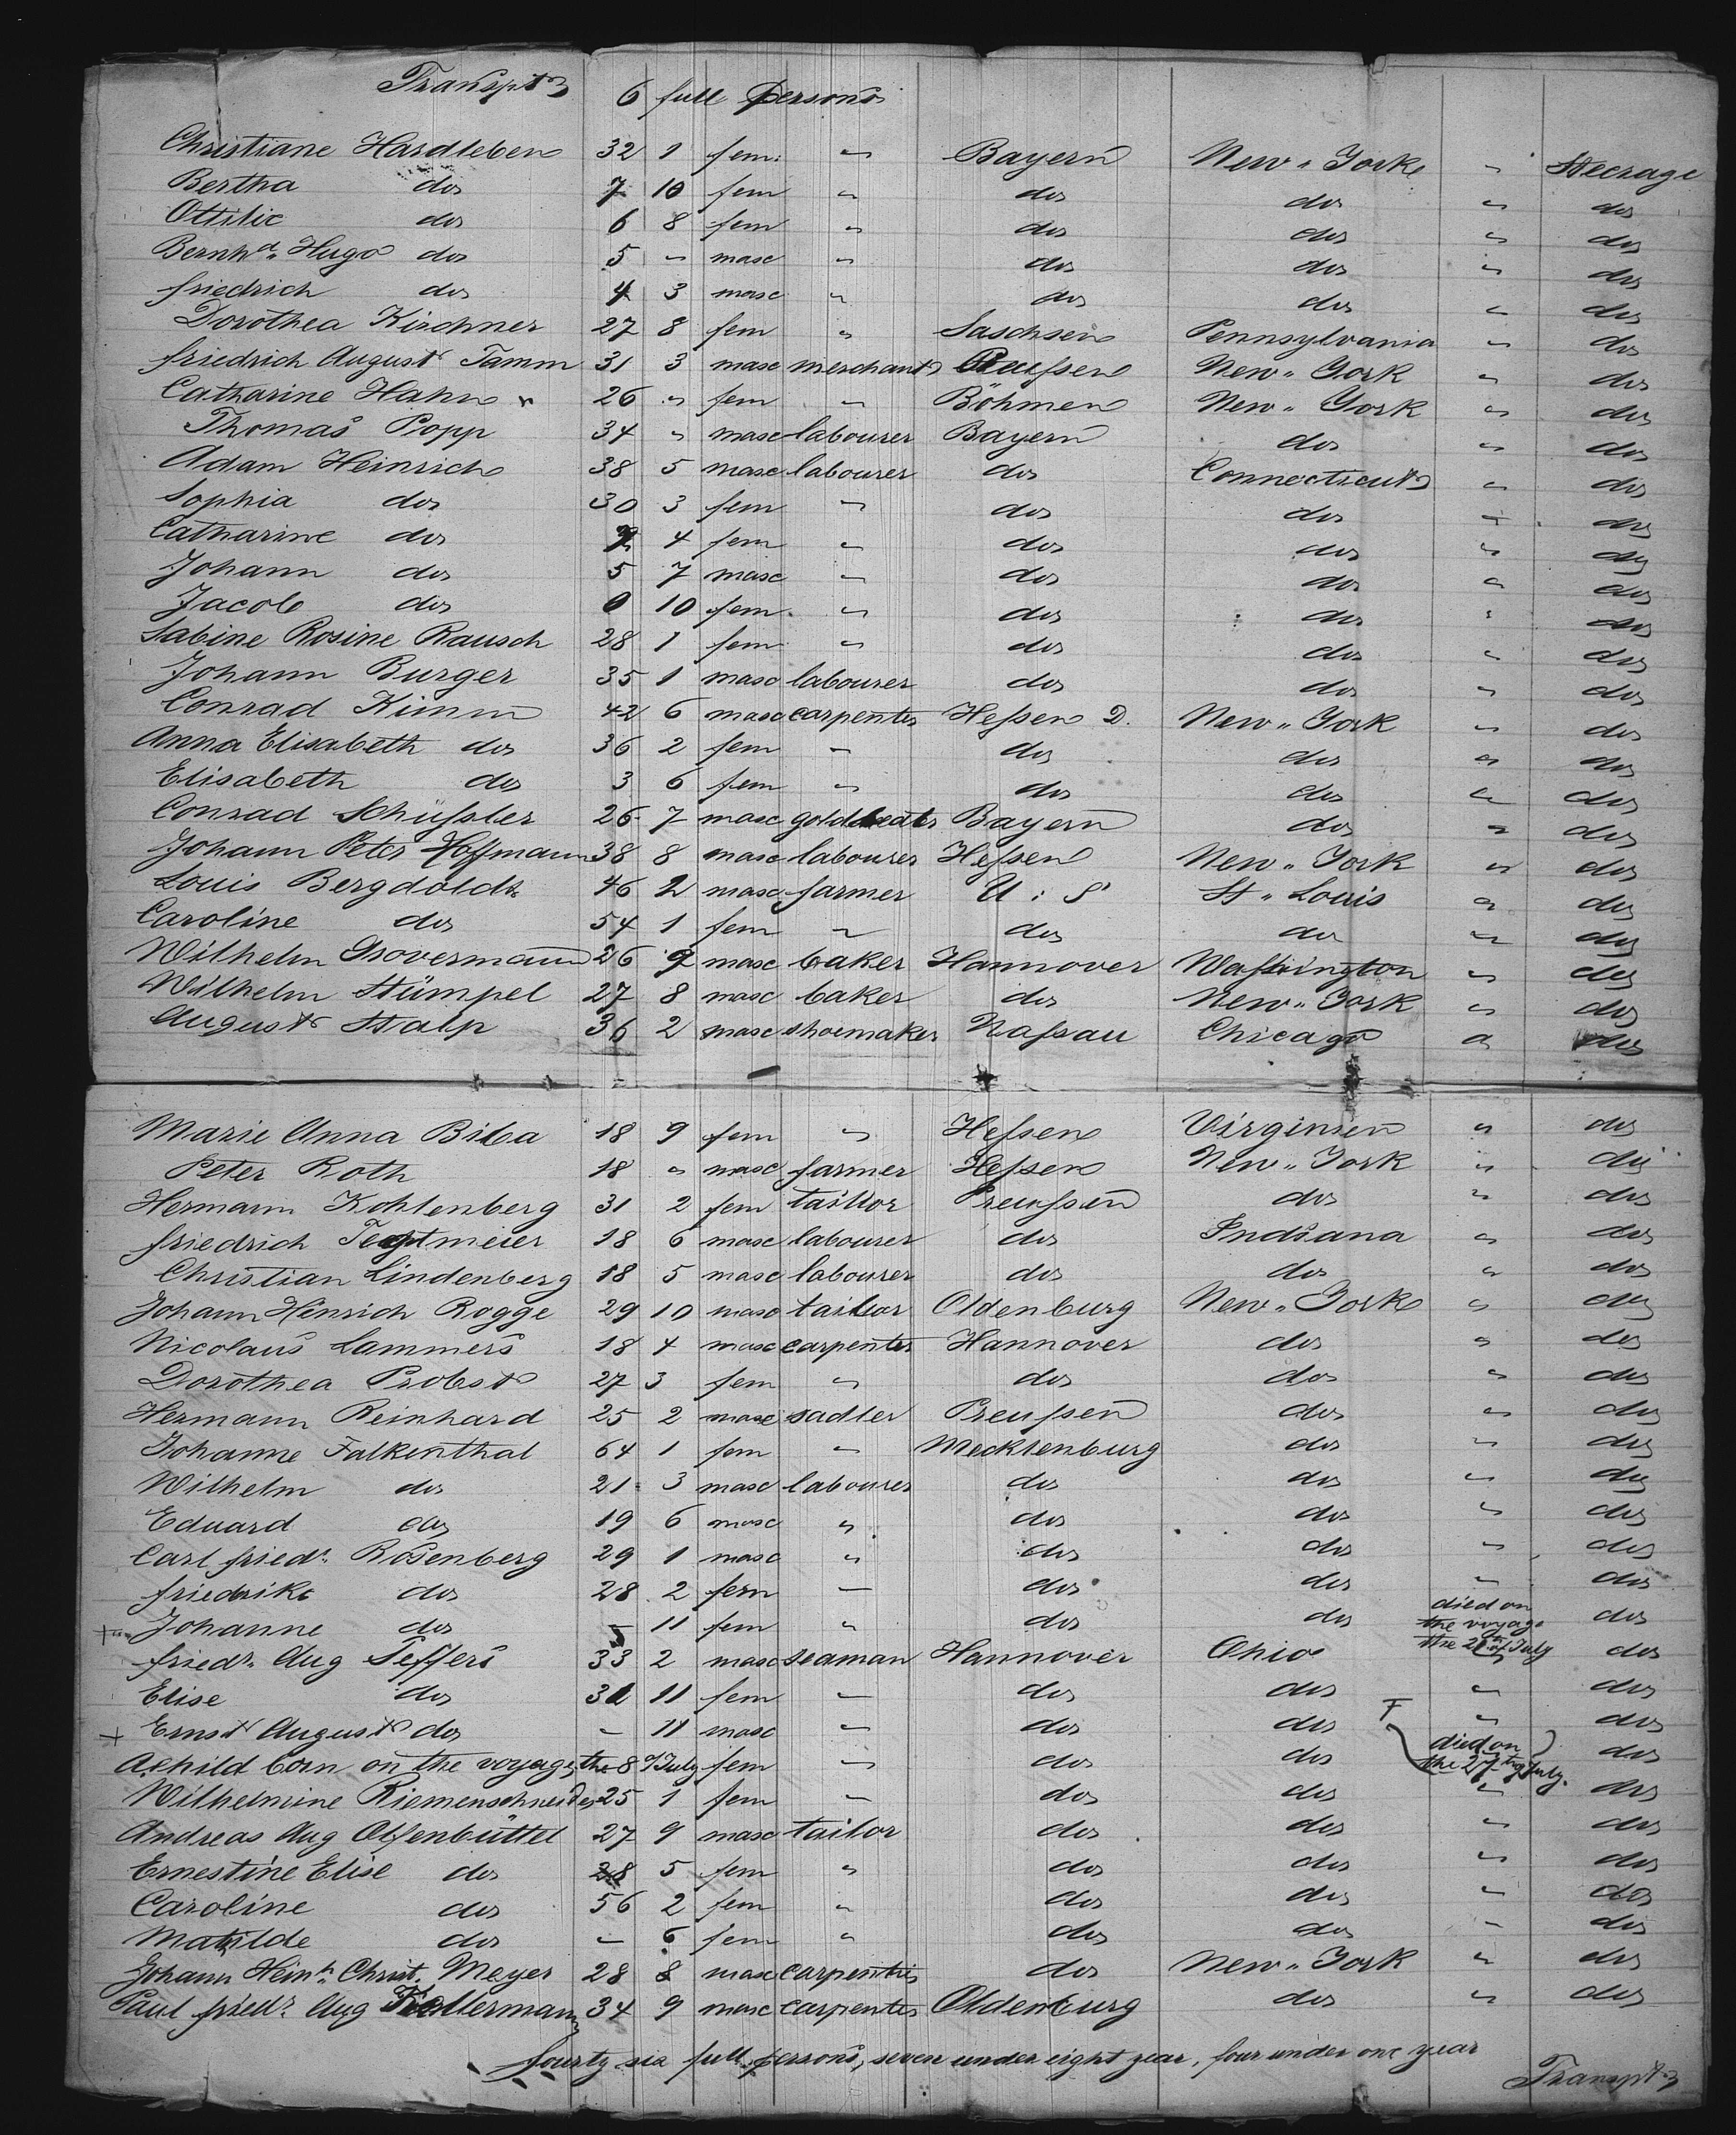 Transpt
6 full persons
Christiane Hardleben 32 1 fem: " Bayern New " York " Steerage
Bertha do 7 10 fem " do do " do
Ottilie do 6 8 fem " do do " do
Bernhd. Hugo do 5 " masc " do do " do
friedrich do 4 3 masc " do do " do
Dorothea Kirchner 27 8 fem " Saschsen Pennsylvania " do
friedrich August Tamm 31 3 masc merchant Preußen New " York " do
Catharine Hahn 26 " fem " Böhmen New " York " do
Thomas Popp 34 " masc labourer Bayern do " do
Adam Heinrich 38 5 masc labourer do Connecticut " do
Sophia do 30 3 fem " do do " do
Catharine do 4 fem " do do " do
Johann do 5 7 masc " do do " do
Jacob do 0 10 fem " do do " do
Sabine Rosine Rausch 28 1 fem " do do " do
Johann Burger 35 1 masc labourer do do " do
Conrad Kimm 42 6 masc carpenter Heßen D. New " York " do
Anna Elisabeth do 36 2 fem " do do " do
Elisabeth do 3 6 fem " do do " do
Conrad Schüßler 26 7 masc goldbeater Bayern do " do
Johann Peter Hoffmann 38 8 masc labourer Heßen New " York " do
Louis Bergdoldt 46 2 masc farmer U : S St " Louis " do
Caroline do 54 1 fem " do do " do
Wilhelm Grovermann 26 9 masc baker Hannover Washington " do
Wilhelm Stümpel 27 8 masc baker do New " York " do
August Stalp 36 2 masc shoemaker Naßau Chicago " do
Marie Anna Biba 18 9 fem " Heßen Virginien " do
Peter Roth 18 " masc farmer Heßen New " York " do
Hermann Kohlenberg 31 2 fem taillor Preußen do " do
friedrich Tegtmeier 18 6 masc labourer do Indiana " do
Christian Lindenberg 18 5 masc labourer do do " do
Johann Hinrich Rogge 29 10 masc tailor Oldenburg New " York " do
Nicolaus Lammers 18 4 masc carpenter Hannover do " do
Dorothea Probst 27 3 fem " do do " do
Hermann Reinhard 25 2 masc sadler Preußen do " do
Johanne Falkenthal 64 1 fem " Mecklenburg do " do
Wilhelm do 21 3 masc labourer do do " do
Eduard do 19 6 masc " do do " do
Carl friedr. Rosenberg 29 1 masc " do do " do
friedrike do 28 2 fem " do do " do
Johanne do 5 11 fem " do do died on the voyage the of July do
friedr. Aug Seffers 33 2 masc seaman Hannover Ohio " do
Elise do 11 fem " do do " do
+ Ernst August do " 11 masc " do do " do
A child born on the voyage, the 8 of July fem " do do died on the 27 July. do
Wilhelmine Riemenschneider 25 1 fem " do do " do
Andreas Aug Olfenbüttel 27 9 masc tailor do do " do
Ernestine Elise do 28 5 fem " do do " do
Caroline do 56 2 fem " do do " do
Matilde do " 6 fem " do do " do
Johann Heinh. Christ. Meyer 28 8 masc carpenter do New " York " do
Paul friedr. Aug Kellermann 34 9 masc carpenter Oldenburg do " do
fourty six full persons, seven under eight year, four under one year
Transpt